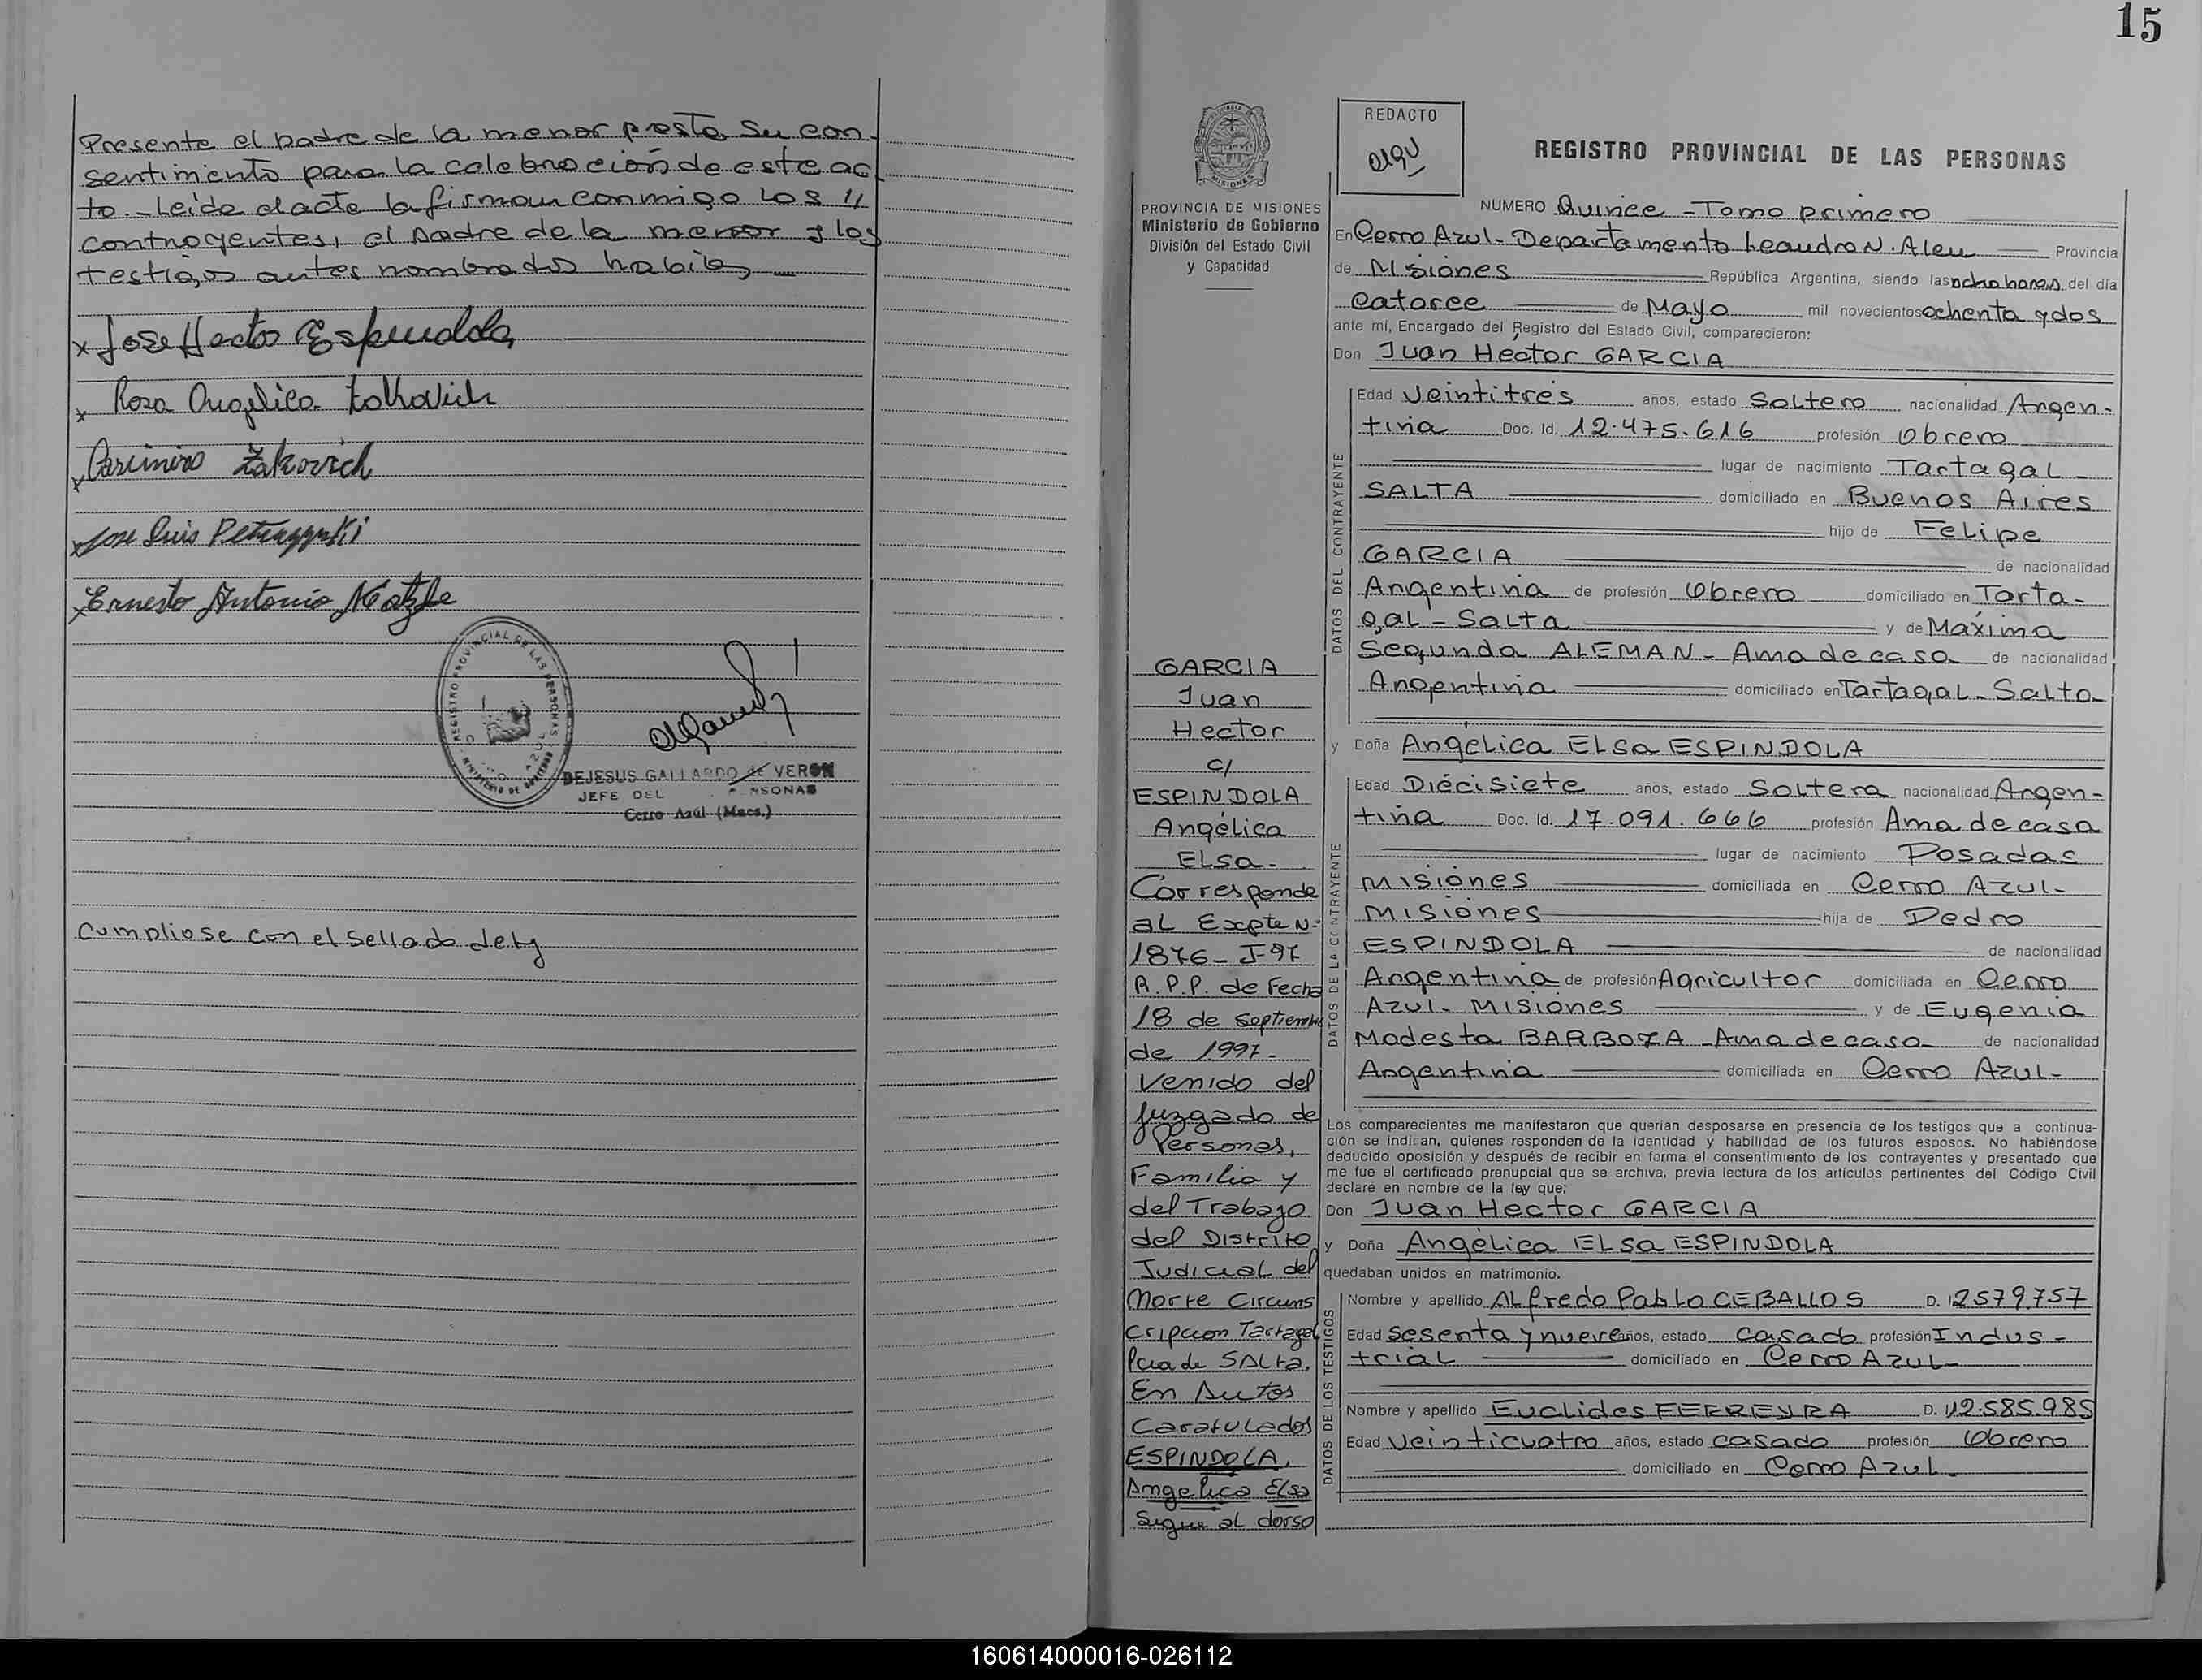 Presente el padre de la menor presta su con-
sentimiento para la celebración de este ac-
to.- Leída el acta la firman conmigo los //
contrayentes, el padre de la menor y los
testigos antes nombrados habiles
x Jose Hector Espindola
x Rosa Angelica Zakovich
x Casimiro Zakovich
x Jose Luis
x Ernesto Antonio
REGISTRO PROVINCIAL DE LAS PERSONAS
DEJESUS GALLARDO de VERON
JEFE DEL PERSONAS
Cerro Azúl (Mnes.)
Cumpliose con el sellado de ley
15
PROVINCIA DE MISIONES
Ministerio de Gobierno
División del Estado Civil
y Capacidad
GARCIA
Juan
Hector
c/
ESPINDOLA
Angélica
ELSa.-
Corresponde
al Expte Nº
1876- J-97
R.P.P. de Fecha
18 de Septiembre
de 1997.-
Venido del
Juzgado de
Personas,
Familia y
del Trabajo
del Distrito
Judicial del
Norte Circuns
cripcion Tartagal
Pcia de SALTA.
En Autos
Caratulados
ESPINDOLA,
Angelica Elsa
Sigue al dorso
REDACTO
REGISTRO PROVINCIAL DE LAS PERSONAS
NUMERO Quince - Tomo primero
En Cerro Azul- Departamento Leandro N. Alem Provincia
de Misiones República Argentina, siendo las ocho horas del día
Catorce de Mayo mil novecientos ochenta y dos
ante mí, Encargado del Registro del Estado Civil, comparecieron:
Don Juan Hector GARCIA
DATOS DEL CONTRAYENTE
Edad Veintitrés años, estado Soltero nacionalidad Argen-
tina Doc. Id. 12.475.616 profesión Obrero
lugar de nacimiento Tartagal-
SALTA domiciliado en Buenos Aires
hijo de Felipe
GARCIA de nacionalidad
Argentina de profesión Obrero domiciliado en Tarta-
gal - Salta y de Máxima
Segunda ALEMAN - Ama de casa de nacionalidad
Argentina domiciliado en Tartagal - Salta
y Doña Angélica ELSa ESPINDOLA
DATOS DE LA CONTRAYENTE
Edad Diécisiete años, estado Soltera nacionalidad Argen-
tina Doc. Id. 17.091.666 profesión Ama de casa
lugar de nacimiento Posadas
Misiones domiciliada en Cerro Azul-
Misiones hija de Pedro
ESPINDOLA de nacionalidad
Argentina de profesión Agricultor domiciliada en Cerro
Azul- Misiones y de Eugenia
Modesta BARBOZA - Ama de casa de nacionalidad
Argentina domiciliada en Cerro Azul-
Los comparecientes me manifestaron que querían desposarse en presencia de los testigos que a continua-
ción se indican, quienes responden de la identidad y habilidad de los futuros esposos. No habiéndose
deducido oposición y después de recibir en forma el consentimiento de los contrayentes y presentado que
me fue el certificado prenupcial que se archiva, previa lectura de los artículos pertinentes del Código Civil
declaré en nombre de la ley que:
Don Juan Hector GARCIA
y Doña Angélica ELSa ESPINDOLA
quedaban unidos en matrimonio.
DATOS DE LOS TESTIGOS
Nombre y apellido ALfredo Pablo CEBALLOS D. 12579757
Edad Sesenta y nueve años, estado Casado profesión Indus-
trial domiciliado en Cerro Azul-
Nombre y apellido Euclides FERREYRA D. 12.585.985
Edad Veinticuatro años, estado casado profesión Obrero
domiciliado en Cerro Azul-
160614000016-026112